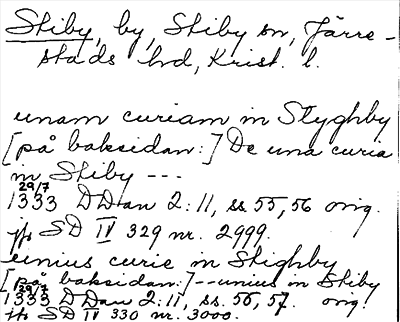 Stiby, by, Stiby sn, Järre-
stads hd, Krist. l.
unam curiam in Styghby
[på baksidan:] De una curia
in Stiby ---
29/7
1333 DDan 2:11, ss 55, 56 orig.
jfr SD IV 329 nr. 2999.
unius curie in Stighby
[på baksidan:] -- unius in Stiby
29/7
1333 DDan 2:11, ss. 56, 57. orig.
jfr SD IV 330 nr. 3000.